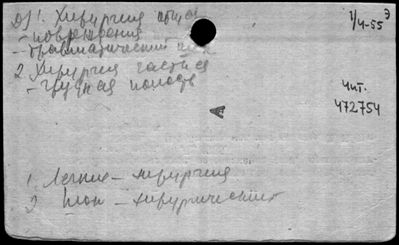 1. Хирургия общая
- повреждения
- травматический шок
2. Хирургия частная
- грудная полость
1/4-55
Э
Чит.
472754
А
1. Легкие - хирургия
2. - хирургический